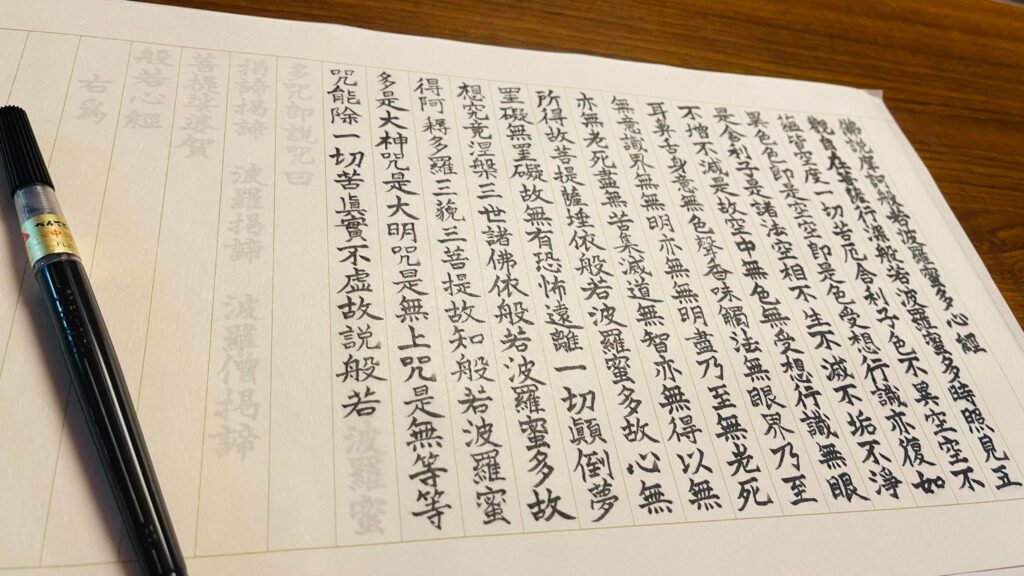 佛説摩訶般若波羅蜜多心經
觀自在菩薩行深般若波羅蜜多時照見五
蘊皆空度一切苦厄舎利子色不異空空不
異色色即是空空即是色受想行識亦復如
是舎利子是諸法空相不生不滅不垢不淨
不増不減是故空中無色無受想行識無眼
耳鼻舌身意無色聲香味觸法無眼界乃至
無意識界無無明亦無無明盡乃至無老死
亦無老死盡無苦集滅道無智亦無得以無
所得故菩提薩埵依般若波羅蜜多故心無
罣礙無罣礙故無有恐怖遠離一切顛倒夢
想究竟涅槃三世諸佛依般若波羅蜜多故
得阿耨多羅三藐三菩提故知般若波羅蜜
多是大神咒是大明咒是無上咒是無等等
咒能除一切苦眞實不虚故説般若波羅蜜
多咒即説咒曰
掲諦掲諦 波羅掲諦 波羅僧掲諦
菩提娑婆賀
般若心經
右爲
中字